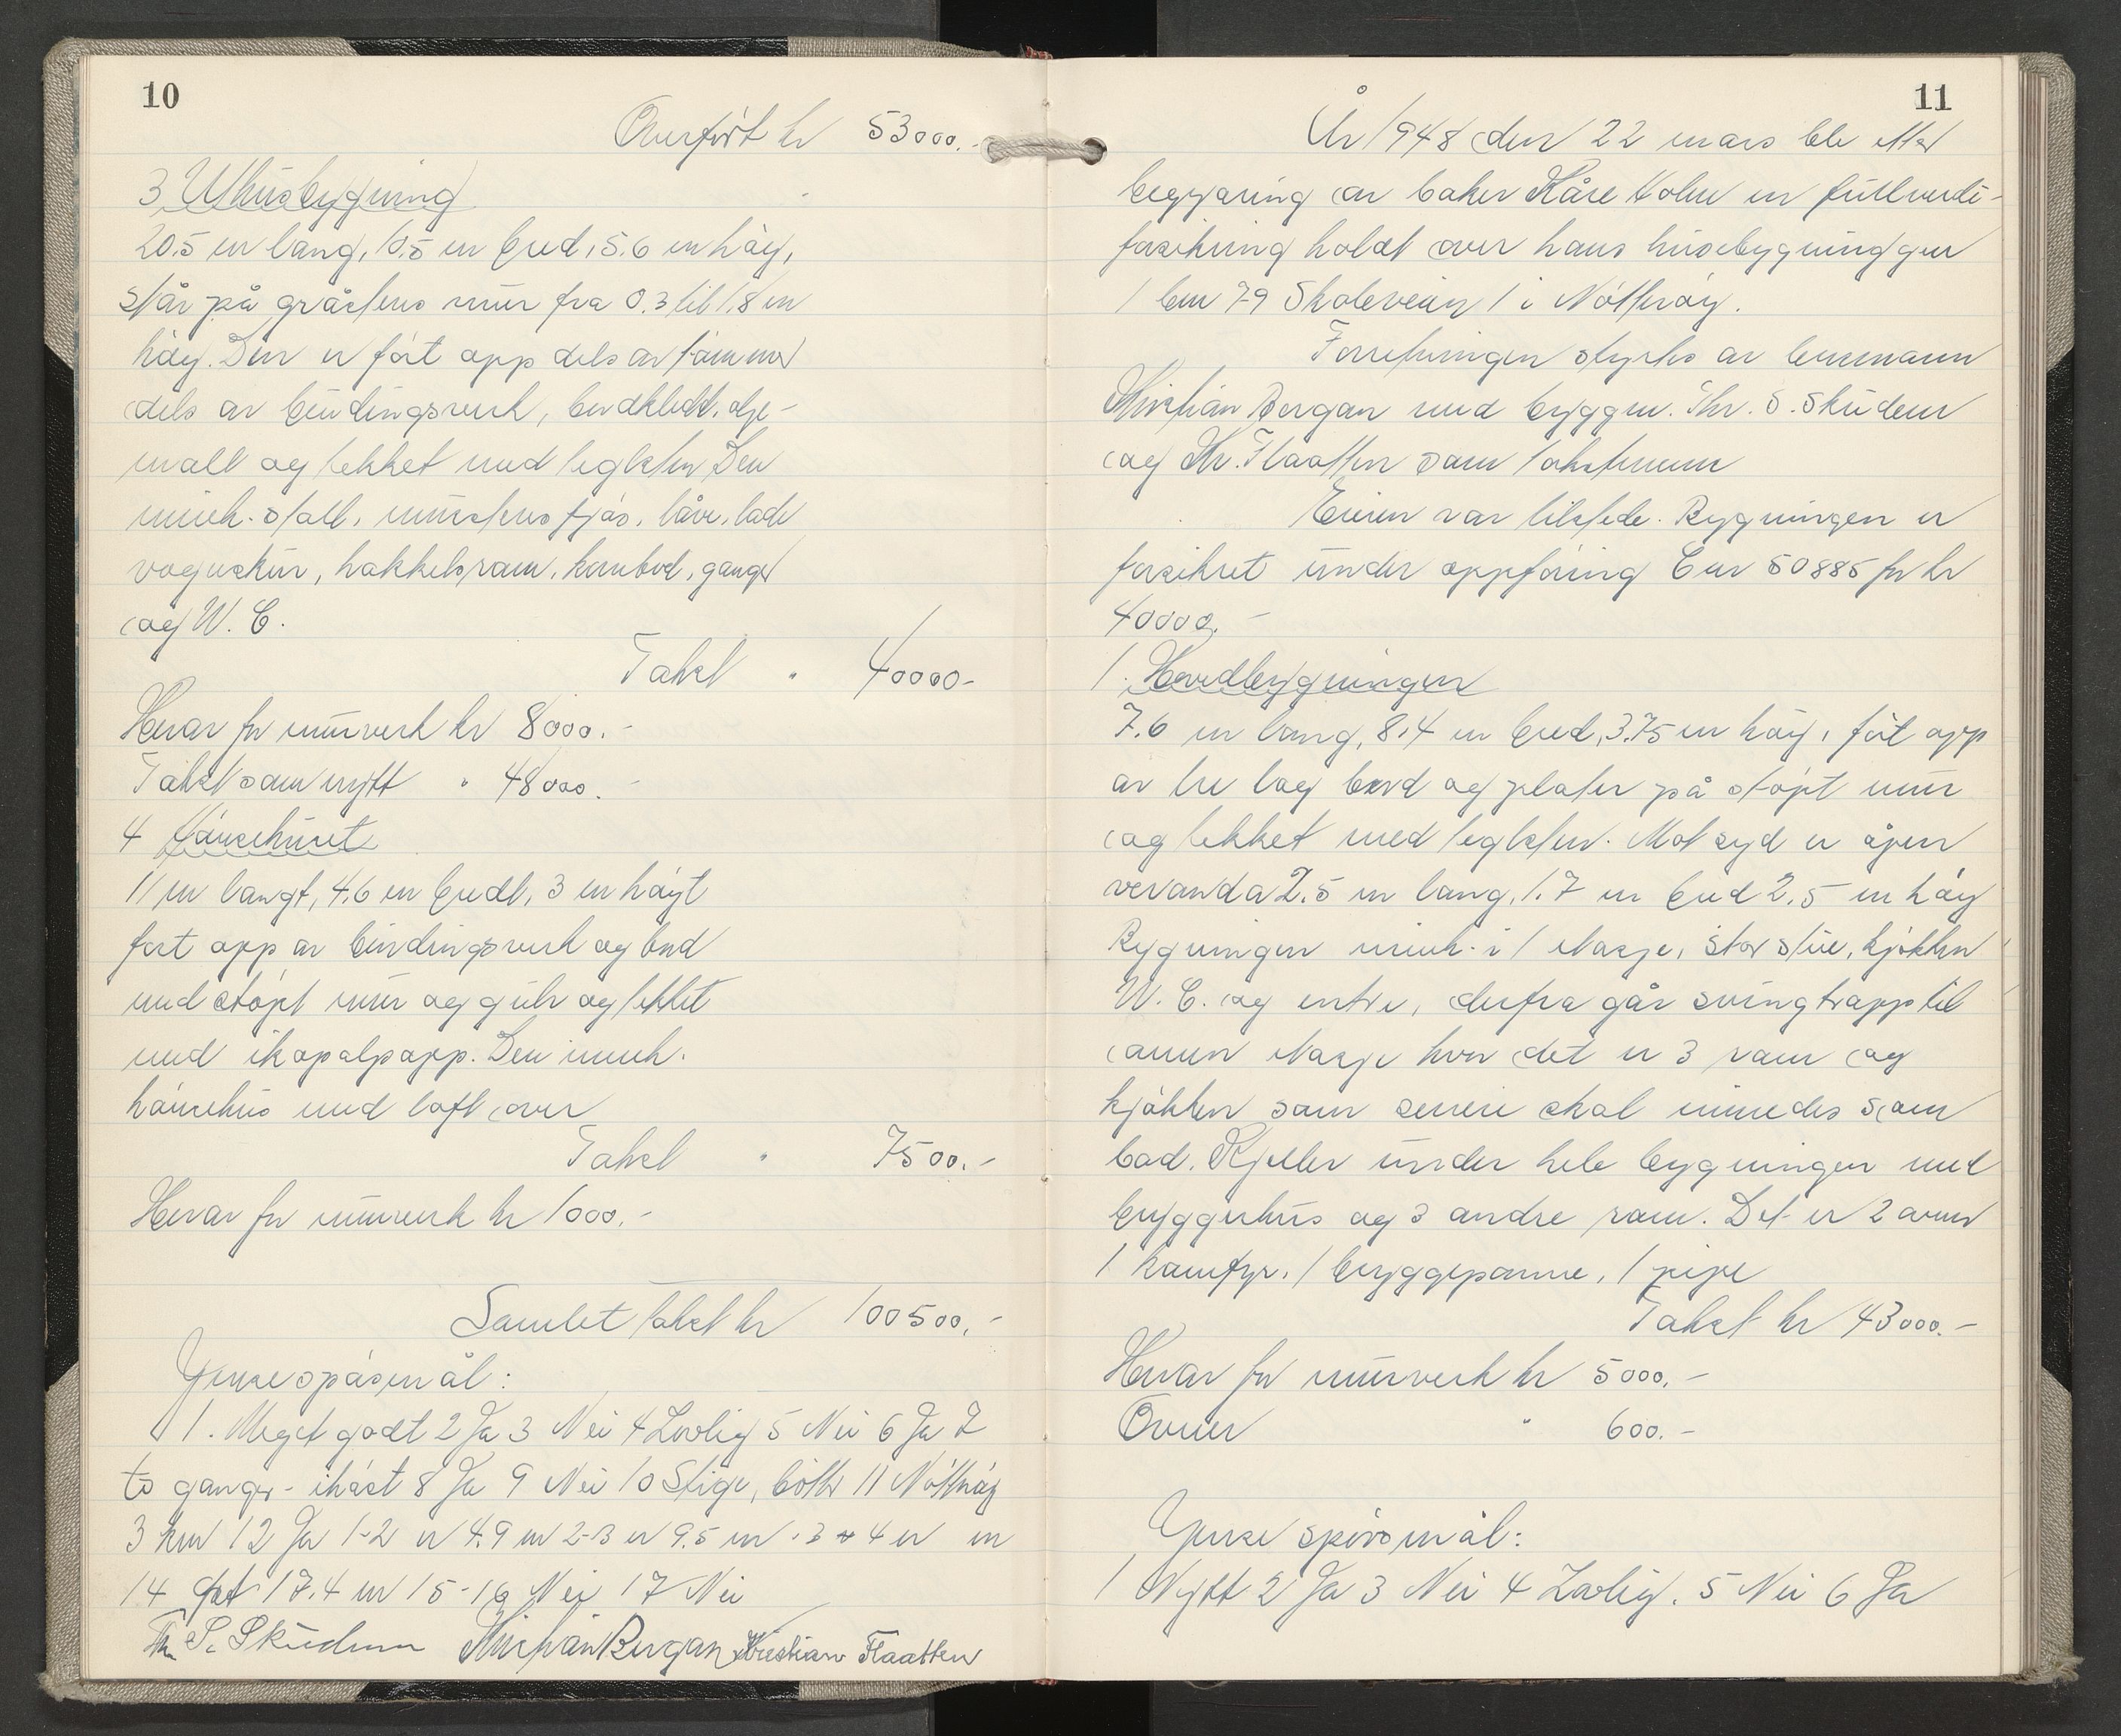 10
Overført kr 53000.-
3 Uthusbygning
20.5 m lang, 10.5 m bred, 5.6 m høy,
står på gråstens mur fra 0.3 til 1.8 m
høy. Den er ført opp dels av tømmer
dels av bindingsverk, bordkledt, olje-
malt og tekket med teglsten Den
inneh. stall, murstens fjøs, låve, lade
vognskur, hakkelsrom, kornbod, ganger
og W.C.
Takst " 40000-
Herav for murverk kr 8000.-
Takst som nytt " 48000.-
4 Hønsehuset
11 m langt, 4.6 m bredt, 3 m høyt
ført opp av bindingsverk og bord
med støpt mur og gulv og tekket
med ikopalpapp. Den inneh.
hønsehus med loft over
Takst " 7500.-
Herav for murverk kr 1000.-
Samlet takst kr 100500.-
Yense spøsmål:
1. Meget godt 2 Ja 3 Nei 4 Lovlig 5 Nei 6 Ja 7
to ganger i høst 8 Ja 9 Nei 10 Stige, bøtter 11 Nøtterøy
3 km 12 Ja 1-2 er 4.9 m 2-3 er 9.5 m 3 4 er m
14 17.4 m 15-16 Nei 17 Nei
Th. S. Skudem Kristian Borgan Kristian Flaatten
11
År 1948 den 22 mars ble etter
begjæring av baker Kåre Holm en fullverdi-
forsikring holdt over hans husebygning gnr
1 bnr 79 Skoleveien 1 i Nøtterøy.
Forretningen styrkes av lensmann
Kristian Borgan med byggm. Thr. S. Skudem
og Kr. Flaatten som takstmenn
Eieren var tilstede. Bygningen er
forsikret under oppføring Bnr 50885 for kr
40000.-
1. Hovedbygningen
7.6 m lang, 8.4 m bred, 3.75 m høy, ført opp
av tre lag bord og plater på støpt mur
og tekket med teglsten. Mot syd er åpen
veranda 2.5 m lang, 1.7 m bred 2.5 m høy
Bygningen inneh. i 1 etasje, stor stue, kjøkken
W.C. og entre, derfra går svingtrapp til
annen etasje hvor det er 3 rom og
kjøkken som senere skal innredes som
bad. Kjeller under hele bygningen med
bryggerhus og 3 andre rom. Det er 2 ovner
1 komfyr, 1 bryggepanne, 1 pipe
Takst kr 43000.-
Herav for murverk kr 5000.-
Ovner " 600.-
Yense spørsmål:
1 Nytt 2 Ja 3 Nei 4 Lovlig. 5 Nei 6 Ja